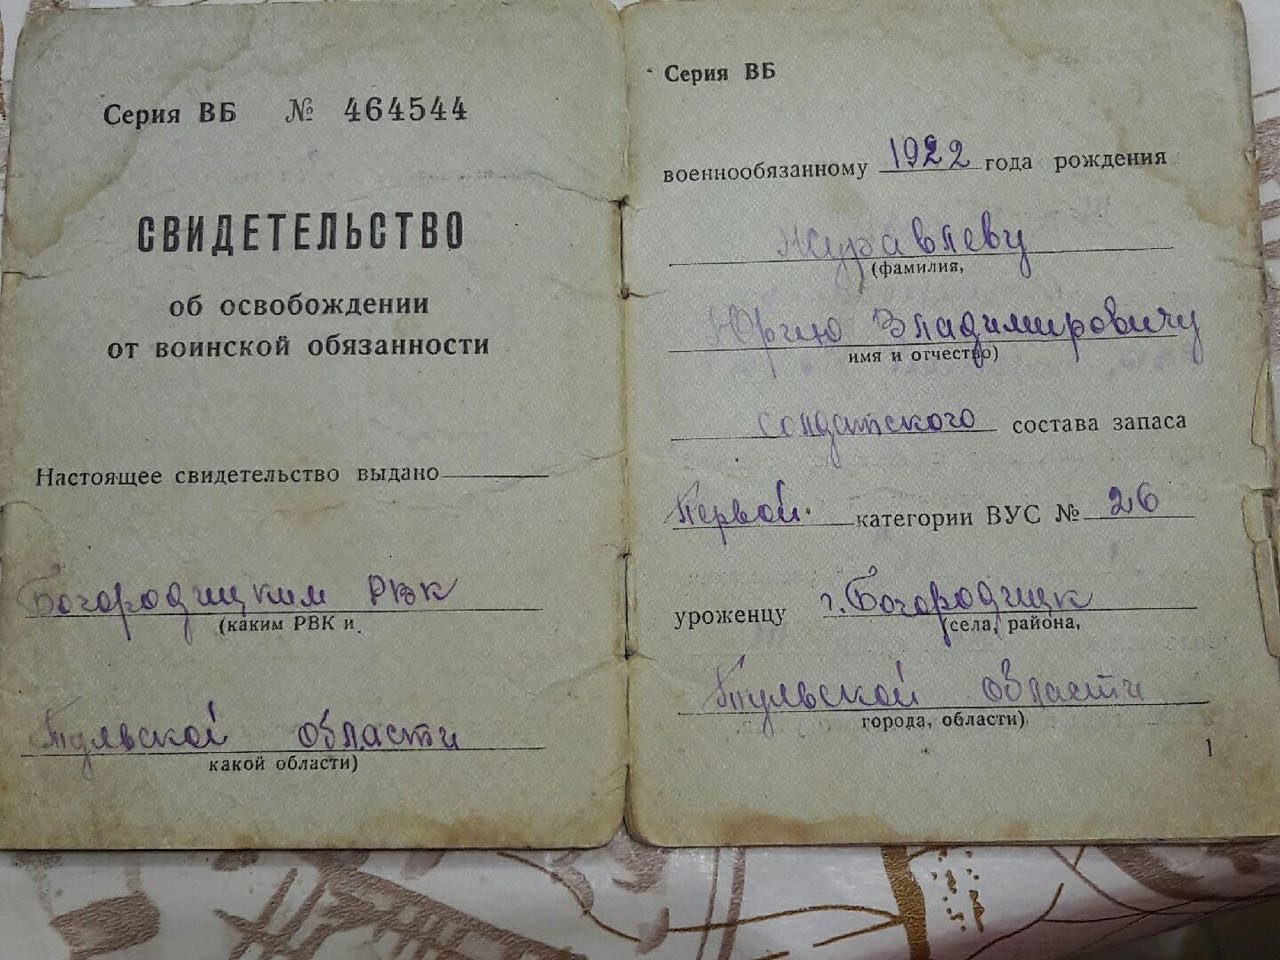 Серия ВБ № 464544
СВИДЕТЕЛЬСТВО
об освобождении
от воинской обязанности
Настоящее свидетельство выдано
Богородицким РВК
(каким РВК и
Тульской области
какой области)
Серия ВБ
военнообязанному 1922 года рождения
Журавлеву
(фамилия,
Юрию Владимировичу
имя и отчество)
солдатского состава запаса
Первой категории ВУС № 26
уроженцу г. Богородицк
(села, района,
Тульской области
города, области)
1